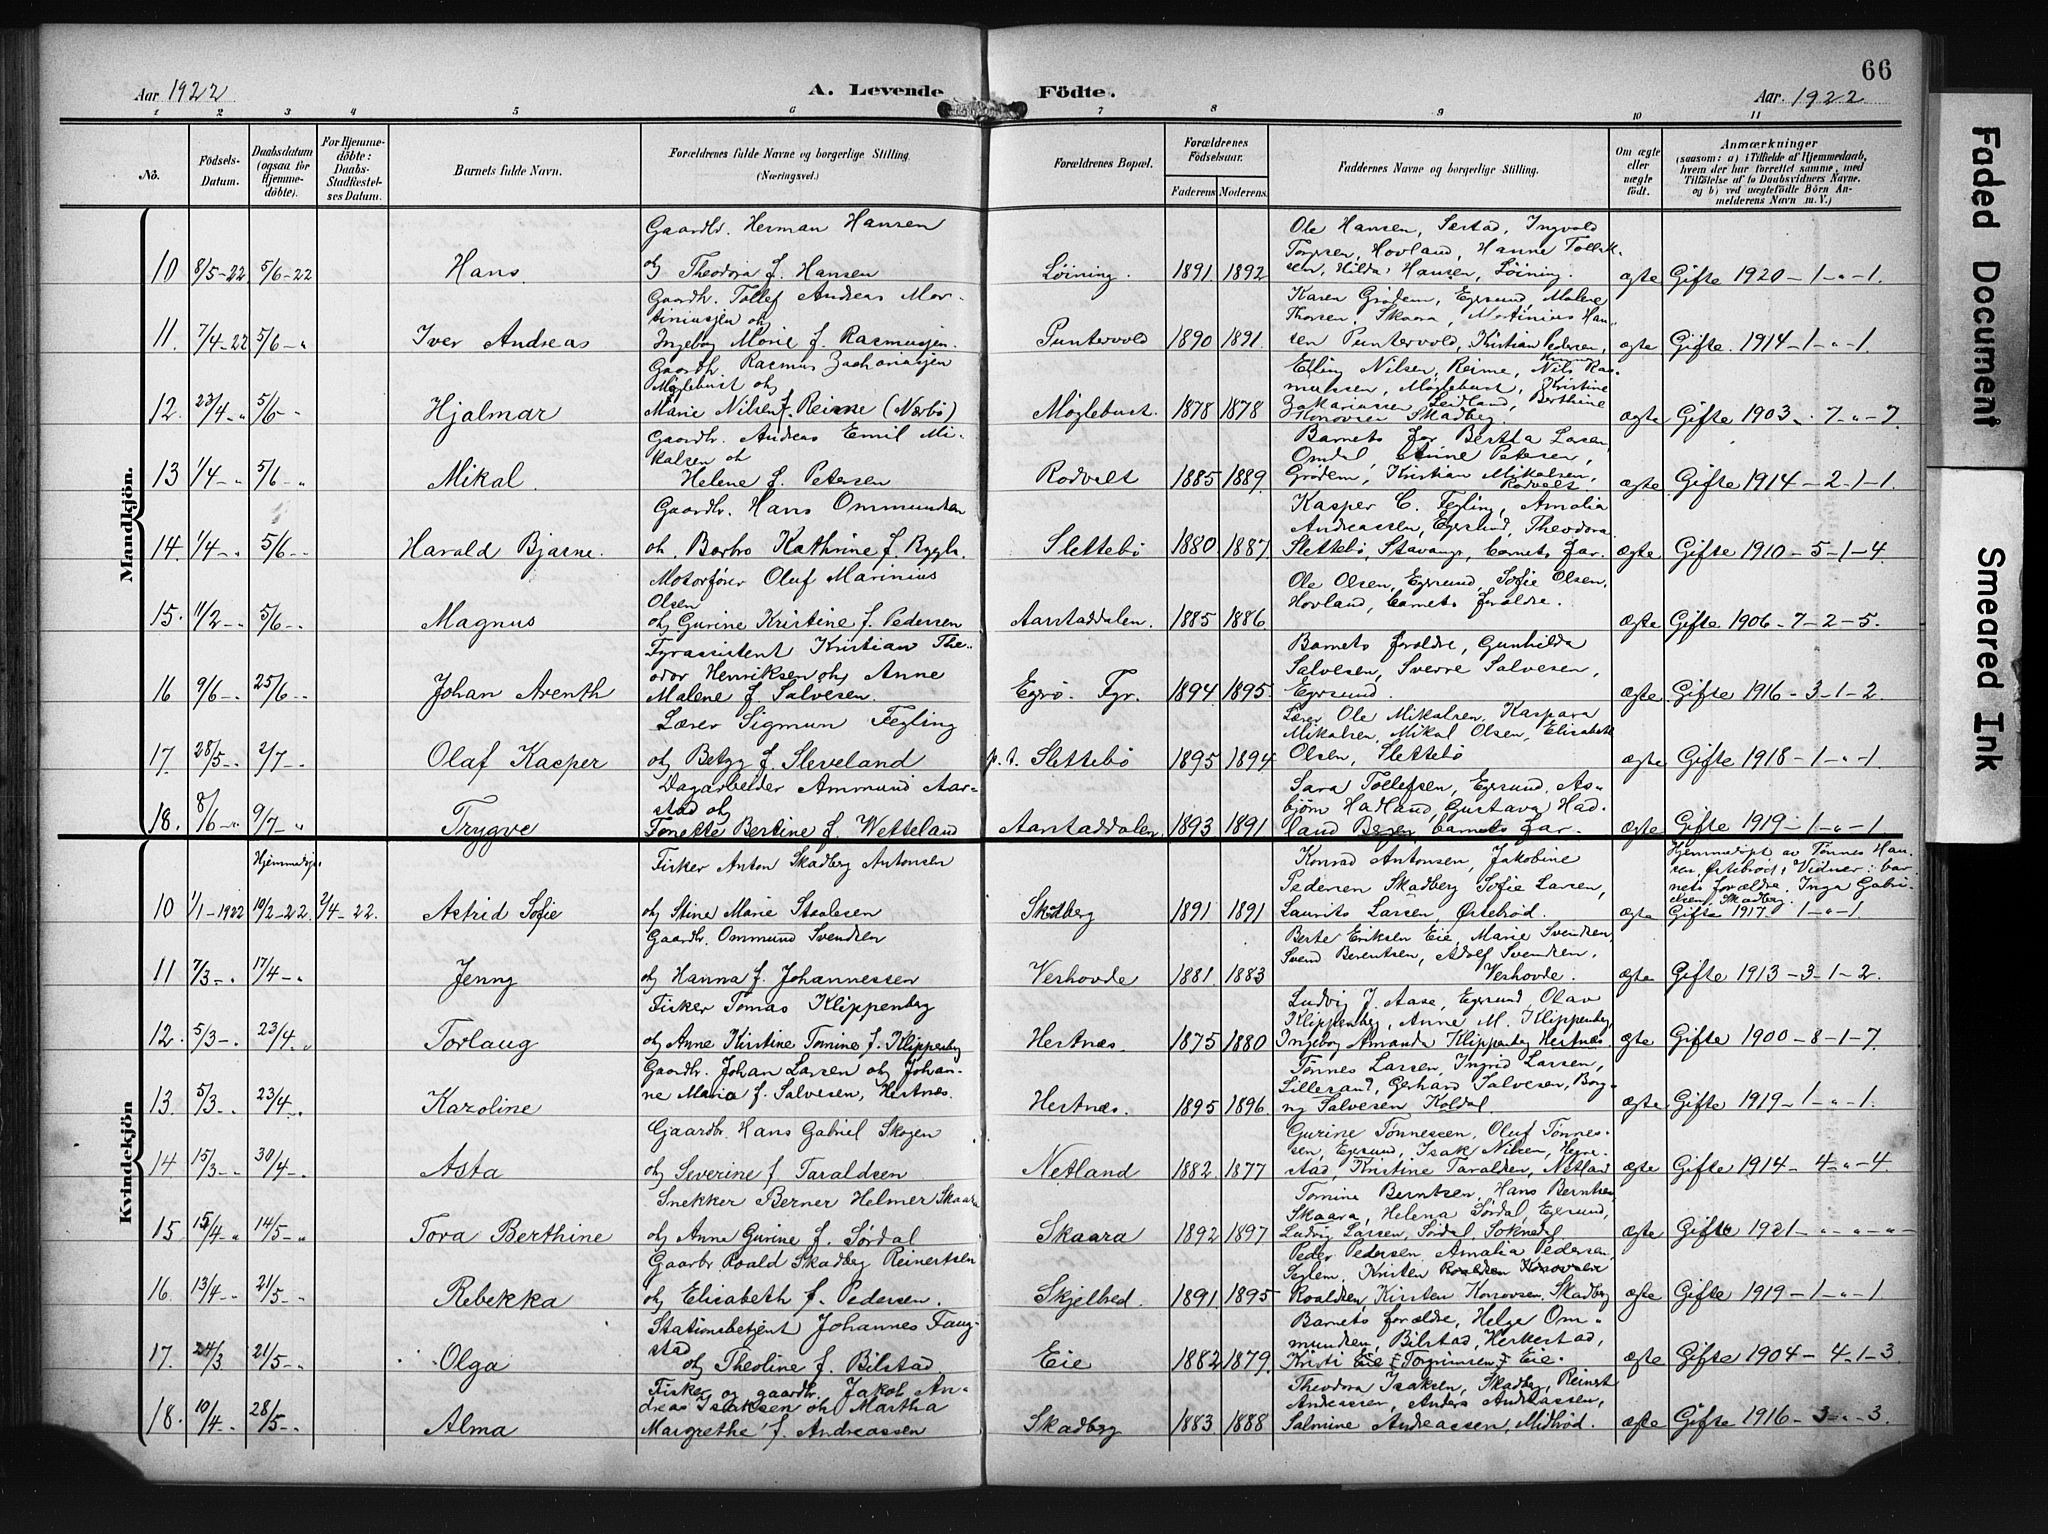 66
Aar 1922
A. Levende Födte.
Aar. 1922
1 2 3 4 5 6 7 8 9 10 11
No.
Födsels-
Datum.
Daabsdatum
(ogsaa for
Hjemme-
döbte).
For Hjemme-
döbte:
Daabs-
Stadfæstel-
ses Datum.
Barnets fulde Navn.
Forældrenes fulde Navne og borgerlige Stilling.
(Næringsvei.)
Forældrenes Bopæl.
Forældrenes
Födselsaar.
Faderens Moderens.
Faddernes Navne og borgerlige Stilling.
Om ægte
eller
uægte
födt.
Anmærkninger
(saasom: a) i Tilfælde af Hjemmedaab,
hvem der har forrettet samme, med
Tilföielse af to Daabsvidners Navne.
og b) ved uægtefödte Börn An-
melderens Navn m. V.)
Mandkjön.
10 8/5-22 5/6-22 Hans
Gaardbr. Herman Hansen
og Theodora f. Hansen
Löining. 1891 1892
Ole Hansen, Sæstad, Ingvold
Torgersen, Hovland, Hanne Tollef-
sen, Hilda Hansen, Löining.
ægte Gifte 1920-1-"-1.
11. 7/4-22 5/6-" Iver Andreas
Gaardbr. Tollef Andreas Mar-
tiniusen og
Ingeborg Marie f. Rasmussen.
Puntervold 1890 1891.
Karen Grødem, Egersund, Malene
Thorsen, Skaara, Martinius Han-
sen Puntervold, Kristian Pedersen,
ægte Gifte. 1914-1-"-1.
12. 23/4-" 5/6- Hjalmar
Gaardbr. Rasmus Zachariasen
Møglebust og
Marie Nilsen f. Reime (Nærbö)
Møglebust. 1878 1878
Elling Nilsen, Reime, Nils Ras-
mussen, Møglebust, Kristine
Zakariassen, Leidland, Berthine
Konovsen Skadberg.
ægte Gifte 1903-7-"-7.
13 1/4-" 5/6-" Mikal.
Gaardbr. Andreas Emil Mi-
kalsen og
Helene f. Petersen
Rodvelt 1885 1889.
Barnets far, Bertha Larsen,
Omdal, Anne Petersen,
Grødem, Kristian Mikalsen,
Rodvelt
ægte Gifte 1914-2-1-1.
14. 1/4-" 5/6-" Harald Bjarne.
Gaardbr. Hans Ommundsen
og Barbro Kathrine f. Rygh.
Slettebö 1880 1887
Kasper C. Fegling, Amalia
Andreassen, Egersund, Theodora
Slettebö, Stavanger, barnets far.
ægte Gifte 1910-5-1-4
15. 11/2-" 5/6-" Magnus
Motorfører Oluf Marinius
Olsen
og Gurine Kristine f. Pedersen
Aarstaddalen. 1885 1886
Ole Olsen, Egersund, Sofie Olsen,
Hovland, barnets foreldre.
ægte Gifte 1906-7-2-5.
16 9/6-" 25/6-" Johan Arenth
Fyrassistent Kristian The-
odor Henriksen og Anne
Malene f. Salvesen.
Egerö. Fyr. 1894 1895.
Barnets foreldre, Gunhilda
Salvesen, Sverre Salvesen,
Egersund.
ægte Gifte 1916-3-1-2
17. 28/5-" 2/7-" Olaf Kasper
Lærer Sigmun Fegling
og Betzy f. Sleveland
p.t. Slettebö 1895 1894
Lærer Ole Mikalsen, Kaspara
Mikalsen, Mikal Olsen, Elisabeth
Olsen, Slettebö
ægte Gifte 1918-1-"-1.
18. 8/6-" 9/7-" Trygve
Dagarbeider Ammund Aar-
stad og
Tonette Bertine f. Wetteland
Aarstaddalen 1893 1891
Sara Tollefsen, Egersund, As-
bjørn Hadland, Gustava Had-
land Bergen barnets far.
ægte Gifte 1919-1-"-1
Kvindekjön
10 1/1-1922 Hjemmedøpt 10/2-22. 2/4-22. Astrid Sofie
Fisker Anton Skadberg Antonsen
og Stine Marie Staalesen
Skadberg 1891 1891
Konrad Antonsen, Jakobine
Pedersen Skadberg Sofie Larsen,
Laurits Larsen, Østebrød.
ægte
Hjemmedøpt av Tønnes Han-
sen, Østebrød, Vidner: bar-
nets forældre. Inga Gabri-
elsen, Skadberg.
Gifte 1917. 1-"-1
11 7/3-" 17/4-" Jenny
Gaardbr. Ommund Svendsen
og Hanna f. Johannessen
Veshovde 1881 1883
Berte Eriksen Eie, Marie Svendsen,
Svend Berentsen, Adolf Svendsen,
Veshovde.
ægte Gifte 1913-3-1-2.
12. 5/3-" 23/4-" Torlaug
Fisker Tomas Klippenberg
og Anne Kirstine Tomine f. Klippenberg
Hestnæs. 1875 1880
Ludvig J. Aase, Egersund, Olav
Klippenberg, Anne M. Klippenberg,
Ingeborg Amanda Klippenberg Hestnæs.
ægte Gifte 1900-8-1-7.
13. 5/3-" 23/4-" Karoline
Gaardbr. Johan Larsen og Johan-
ne Maria f. Salvesen, Hestnæs.
Hestnæs. 1895 1896.
Tønnes Larsen, Ingrid Larsen,
Lillesand, Gerhard Salvesen, Borg-
ny Salvesen Koldal.
ægte. Gifte 1919-1-"-1.
14. 15/3-" 30/4-" Asta
Gaardbr. Hans Gabriel Skogen
og Severine f. Taraldsen
Netland 1882. 1877
Gurine Tønnessen, Oluf Tønnes-
sen, Egersund, Isak Nilsen, Hegre-
stad, Kristine Taraldsen, Netland
ægte Gifte 1914-4-"-4
15. 15/4-" 14/5-" Tora Berthine
Snekker Berner Helmer Skaara
og Anne Gurine f. Sørdal
Skaara 1892 1897
Tomine Berntsen, Hans Berntsen,
Skaara, Helena Sørdal, Egersund,
Ludvig Larsen, Sørdal, Soknedal.
ægte Gifte 1921-"-"-"
16. 13/4-" 21/5-" Rebekka
Gaarbr. Roald Skadberg Reinertsen
og Elisabeth f. Pedersen.
Skjelbred. 1891 1895
Peder Pedersen, Amalia Pedersen,
Seglem, Kristen
Roaldsen, Kirsten Konovsen, Skadberg
ægte Gifte 1919-1-"-1
17. 24/3 21/5-" Olga
Stationsbetjent Johannes Faug-
stad
og Theoline f. Bilstad.
Eie 1882 1879
Barnets forældre, Helge Om-
mundsen, Bilstad, Herrestad,
Kristi Eie f. Torgrimsen f. Eie.
ægte Gifte 1904-4-1-3.
18. 10/4-" 28/5-" Alma
Fisker og gaardbr. Jakob An-
dreas Isaksen og Martha
Margrethe f. Andreassen
Skadberg 1883 1888
Theodora Isaksen, Skadberg, Reinert
Andreassen, Anders Andreassen,
Salmine Andreassen, Midbrød.
ægte Gifte 1916-3-"-3.
Faded Document
Smeared Ink